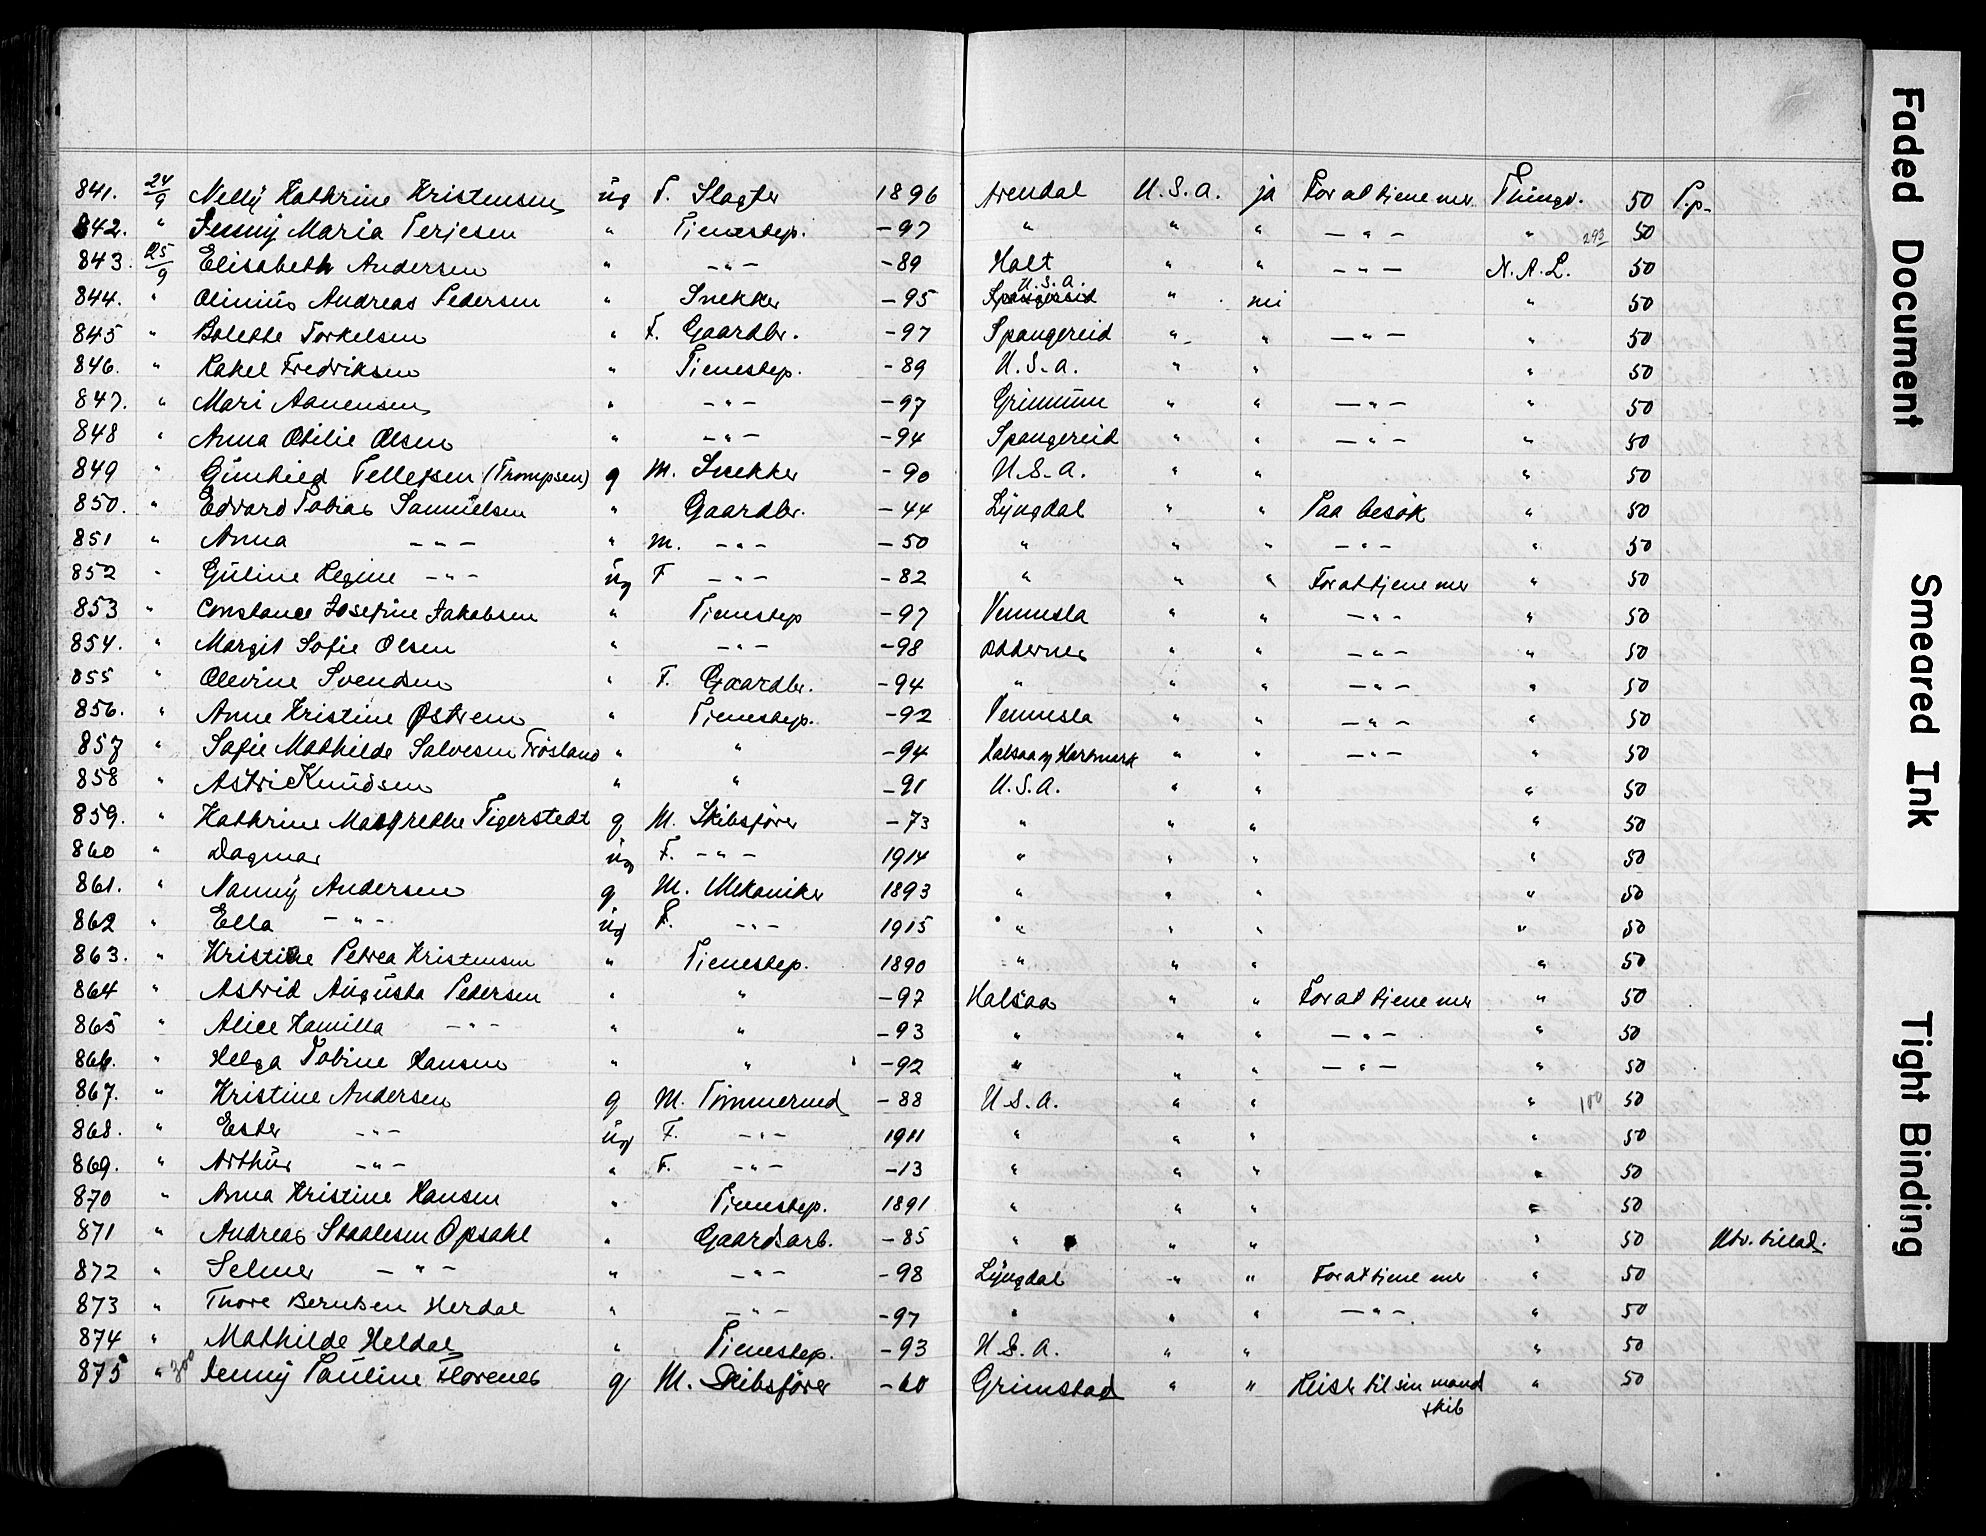 841. 24/9 Nelly Kathrine Kristensen üg F. Slagter 1896 Arendal U.S.A. ja For at tjene mer Thingv. 50 T.p.
842. " Jenny Maria Terjesen " Tienestep. -97 " " " -"- " 293 50
843. 25/9 Elisabeth Andersen " -"- -89 Holt " " -"- N.A.L. 50
844. " Olinius Andreas Pedersen " Snekker -95 U.S.A. " nei " 50
845 " Bolette Torkelsen " F. Gaardbr. -97 Spangereid " " -"- " 50
846. " Rakel Fredriksen " Tienestep. -89 U.S.A. " " " 50
847. " Mari Aanensen " -"- -97 Grimum " " -"- " 50
848 " Anna Otilie Olsen " -"- -94 Spangereid " " -"- " 50
849 " Gunhild Tellefsen (Thompsen) g M. Snekker -90 U.S.A. " " " 50
850. " Edvard Tobias Samuelsen " Gaardbr. -44 Lyngdal " " Paa besök " 50
851 " Anna -"- " M. -"- -50 " " " -"- " 50
852 " Guline Regine -"- üg F -"- -82 " " " For at tjene mer " 50
853 " Constance Josefine Jakobsen " Tienestep -97 Vennesla " " -"- " 50
854. " Margit Sofie Olsen " -"- -98 Oddernes " " -"- " 50
855 " Olevine Svendsen " F. Gaardbr. -94 " " " -"- " 50
856. " Anne Kristine Østrem " Tienestep. -92 Vennesla " " -"- " 50
857 " Sofie Mathilde Salvesen Frösland " " -94 Halsaa og Hartmark " " -"- " 50
858 " Astri Knudsen " " -91 U.S.A. " " " 50
859. " Kathrine Margrethe Tigerstedt g M. Skibsförer -73 " " " " 50
860 " Dagmar üg F. -"- 1914 " " " " 50
861. " Nanny Andersen g M. Mekaniker 1893 " " " " 50
862 " Ella -"- üg F. -"- 1915 " " " " 50
863. " Kristine Petrea Kristensen " Tienestep. 1890 " " " " 50
864 " Astrid Augusta Pedersen " " -97 Halsaa " " For at tjene mer " 50
865 " Alice Kamilla -"- " " -93 " " " -"- " 50
866. " Helga Tobine Hansen " " -92 " " " -"- " 50
867. " Kristine Andersen g M. Tömmermd -88 U.S.A. " " " 100 50
868. " Ester -"- üg F. -"- 1911 " " " " 50
869. " Arthur -"- " F. -"- -13 " " " " 50
870 " Anna Kristine Hansen " Tienestep. 1891 " " " " 50
871 " Andreas Staalesen Opsahl " Gaardsarb. -85 " " " " 50 Utv. tillad.
872 " Selmer -"- " -"- -98 Lyngdal " " For at tjene mer " 50
873 " Thore Berntsen Herdal " -"- -97 " " " -"- " 50
874 " Mathilde Heldal " Tienestep. -93 U.S.A. " " " 50
875 " 300 Jenny Pauline Florenes g M. Skibsförer -60 Grimstad " " Reiser til sin mand " 50
skib
Faded Document
Smeared Ink
Tight Binding